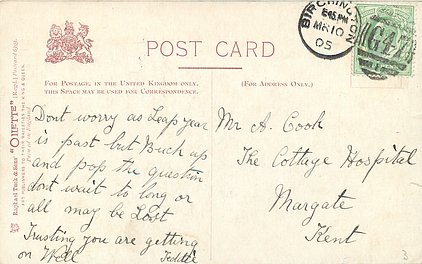 POST CARD
FOR POSTAGE, IN THE UNITED KINGDOM ONLY,
THIS SPACE MAY BE USED FOR CORRESPONDENCE.
(FOR ADDRESS ONLY.)
BIRCHINGTON
8.45 PM
MR 10
05
G47
Raphael Tuck & Sons' "OILETTE" [Regd.] Postcard
Dont worry as Leap year
is past but Buck up
and pop the question
dont wait to long or
all may be Lost
Trusting you are getting
on Well
Mr A. Cook
The Cottage Hospital
Margate
Kent